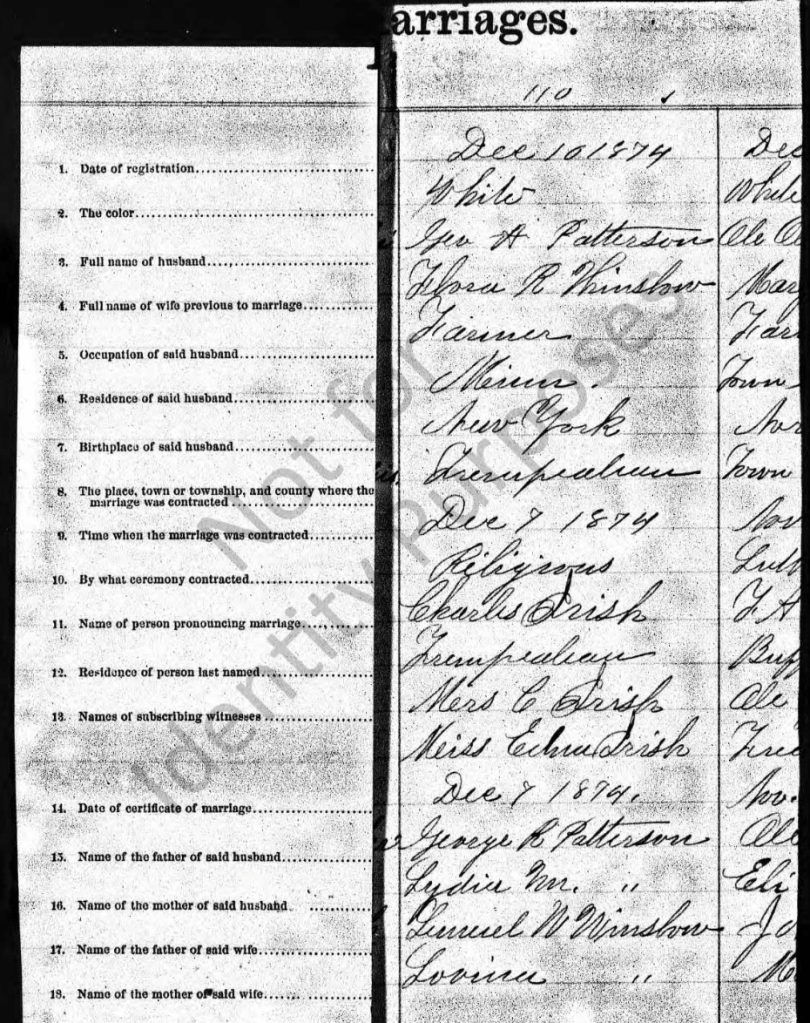 arriages.
110
1. Date of registration
Dec 10 1874
Dec
2. The color
White
White
3. Full name of husband
Geo A Patterson
Ole
4. Full name of wife previous to marriage
Flora R Winslow
Mar
5. Occupation of said husband
Farmer
Far
6. Residence of said husband
Minn.
Town
7. Birthplace of said husband
New York
Nor
8. The place, town or township, and county where the
marriage was contracted
Trempealeau
Town
9. Time when the marriage was contracted
Dec 7 1874
Nov
10. By what ceremony contracted
Religious
Luth
11. Name of person pronouncing marriage
Charles Irish
F A
12. Residence of person last named
Trempealeau
Buff
13. Names of subscribing witnesses
Mers C Irish
Ole
Meiss Edna Irish
Fred
14. Date of certificate of marriage
Dec 7 1874.
Nov.
15. Name of the father of said husband
George R Patterson
Ole
16. Name of the mother of said husband
Lydia M. "
Eli
17. Name of the father of said wife
Lemuel W Winslow
Jo
18. Name of the mother of said wife
Lovina "
M
Not for
Identity Purposes